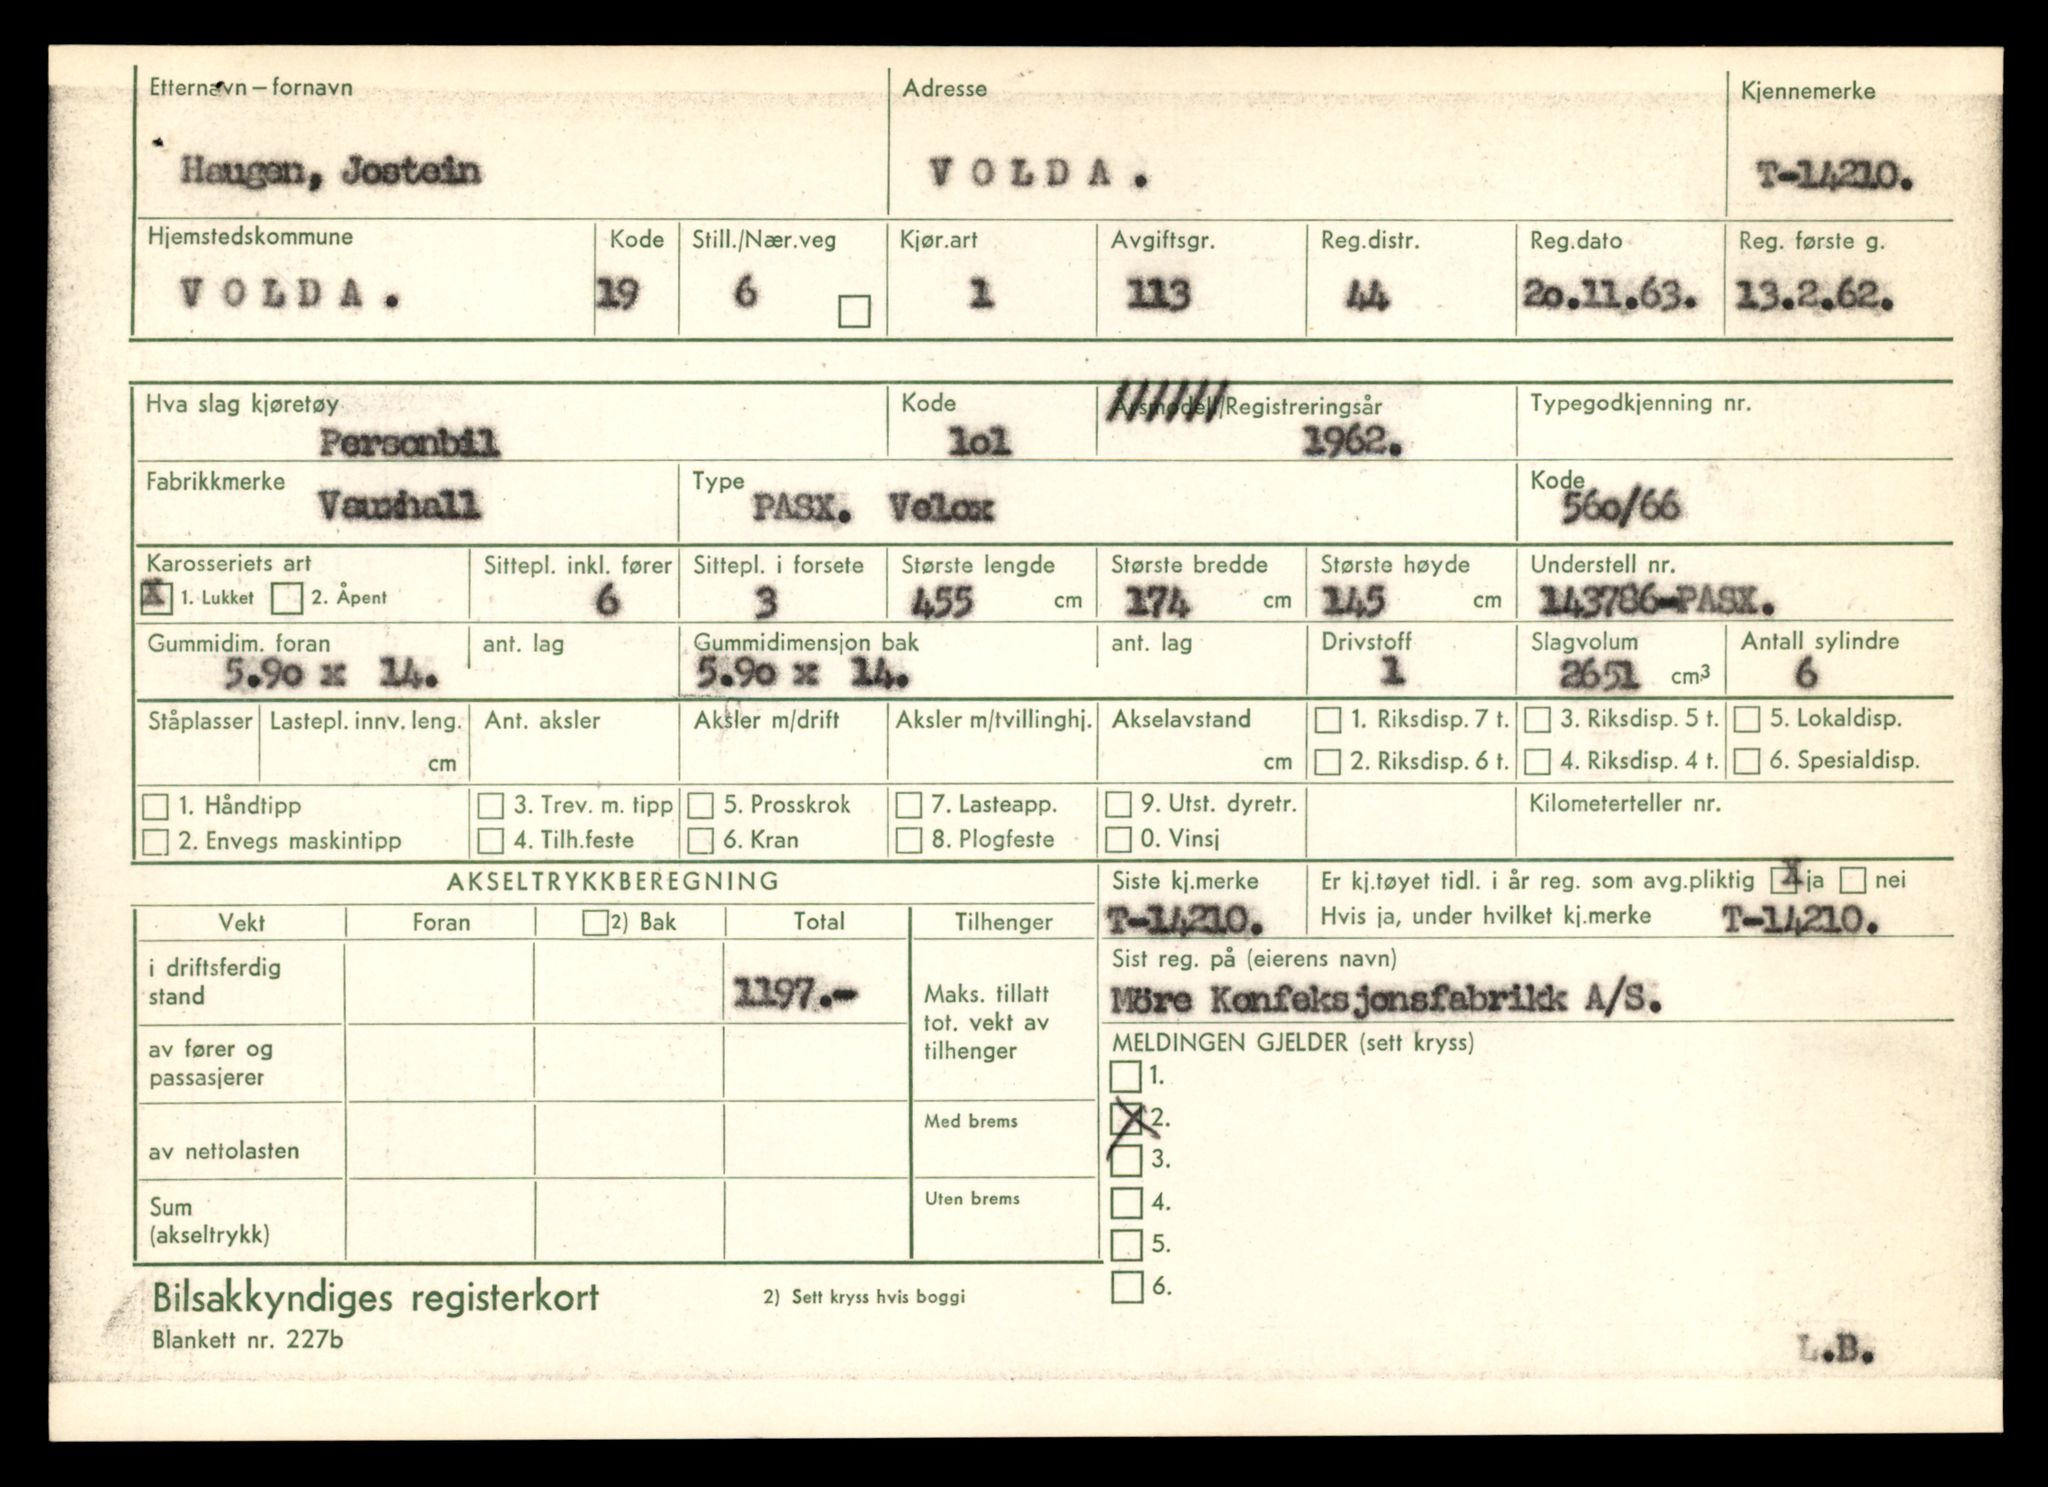 Etternavn – fornavn Adresse Kjennemerke
Haugen, Jostein VOLDA. T-14210.
Hjemstedskommune Kode Still./Nær.veg Kjør.art Avgiftsgr. Reg.distr. Reg.dato Reg. første g.
VOLDA. 19 6 1 113 44 2o.11.63. 13.2.62.
Hva slag kjøretøy Kode Årsmodell/Registreringsår Typegodkjenning nr.
Personbil 1o1 1962.
Fabrikkmerke Type Kode
Vauxhall PASX. Velox 56o/66
Karosseriets art Sittepl. inkl. fører Sittepl. i forsete Største lengde Største bredde Største høyde Understell nr.
X 1. Lukket 2. Åpent 6 3 455 cm 174 cm 145 cm 143786-PASX.
Gummidim. foran ant. lag Gummidimensjon bak ant. lag Drivstoff Slagvolum Antall sylindre
5.9o x 14. 5.9o x 14. 1 2651 cm³ 6
Ståplasser Lastepl. innv. leng. Ant. aksler Aksler m/drift Aksler m/tvillinghj. Akselavstand 1. Riksdisp. 7 t. 3. Riksdisp. 5 t. 5. Lokaldisp.
cm cm 2. Riksdisp. 6 t. 4. Riksdisp. 4 t. 6. Spesialdisp.
1. Håndtipp 3. Trev. m. tipp 5. Prosskrok 7. Lasteapp. 9. Utst. dyretr. Kilometerteller nr.
2. Envegs maskintipp 4. Tilh.feste 6. Kran 8. Plogfeste 0. Vinsj
AKSELTRYKKBEREGNING Siste kj.merke Er kj.tøyet tidl. i år reg. som avg.pliktig X ja nei
Vekt Foran 2) Bak Total Tilhenger T-14210. Hvis ja, under hvilket kj.merke T-14210.
i driftsferdig stand 1197.- Sist reg. på (eierens navn)
Maks. tillatt tot. vekt av tilhenger Möre Konfeksjonsfabrikk A/S.
av fører og passasjerer MELDINGEN GJELDER (sett kryss)
1.
Med brems X 2.
av nettolasten 3.
Sum (akseltrykk) Uten brems 4.
5.
Bilsakkyndiges registerkort 2) Sett kryss hvis boggi 6.
Blankett nr. 227b L.B.